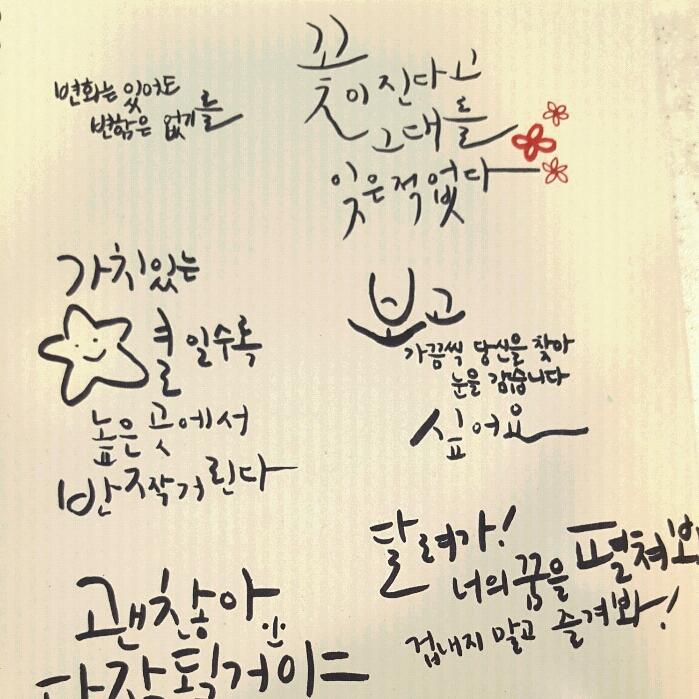 변화는 있어도
변함은 없기를
꽃이 진다고
그대를
잊은 적 없다
가치있는
별일수록
높은 곳에서
반짝거린다
보고
가끔씩 당신을 찾아
눈을 감습니다
싶어요
달려가!
너의 꿈을 펼쳐봐
겁내지 말고 즐겨봐!
괜찮아
다 잘 될거야